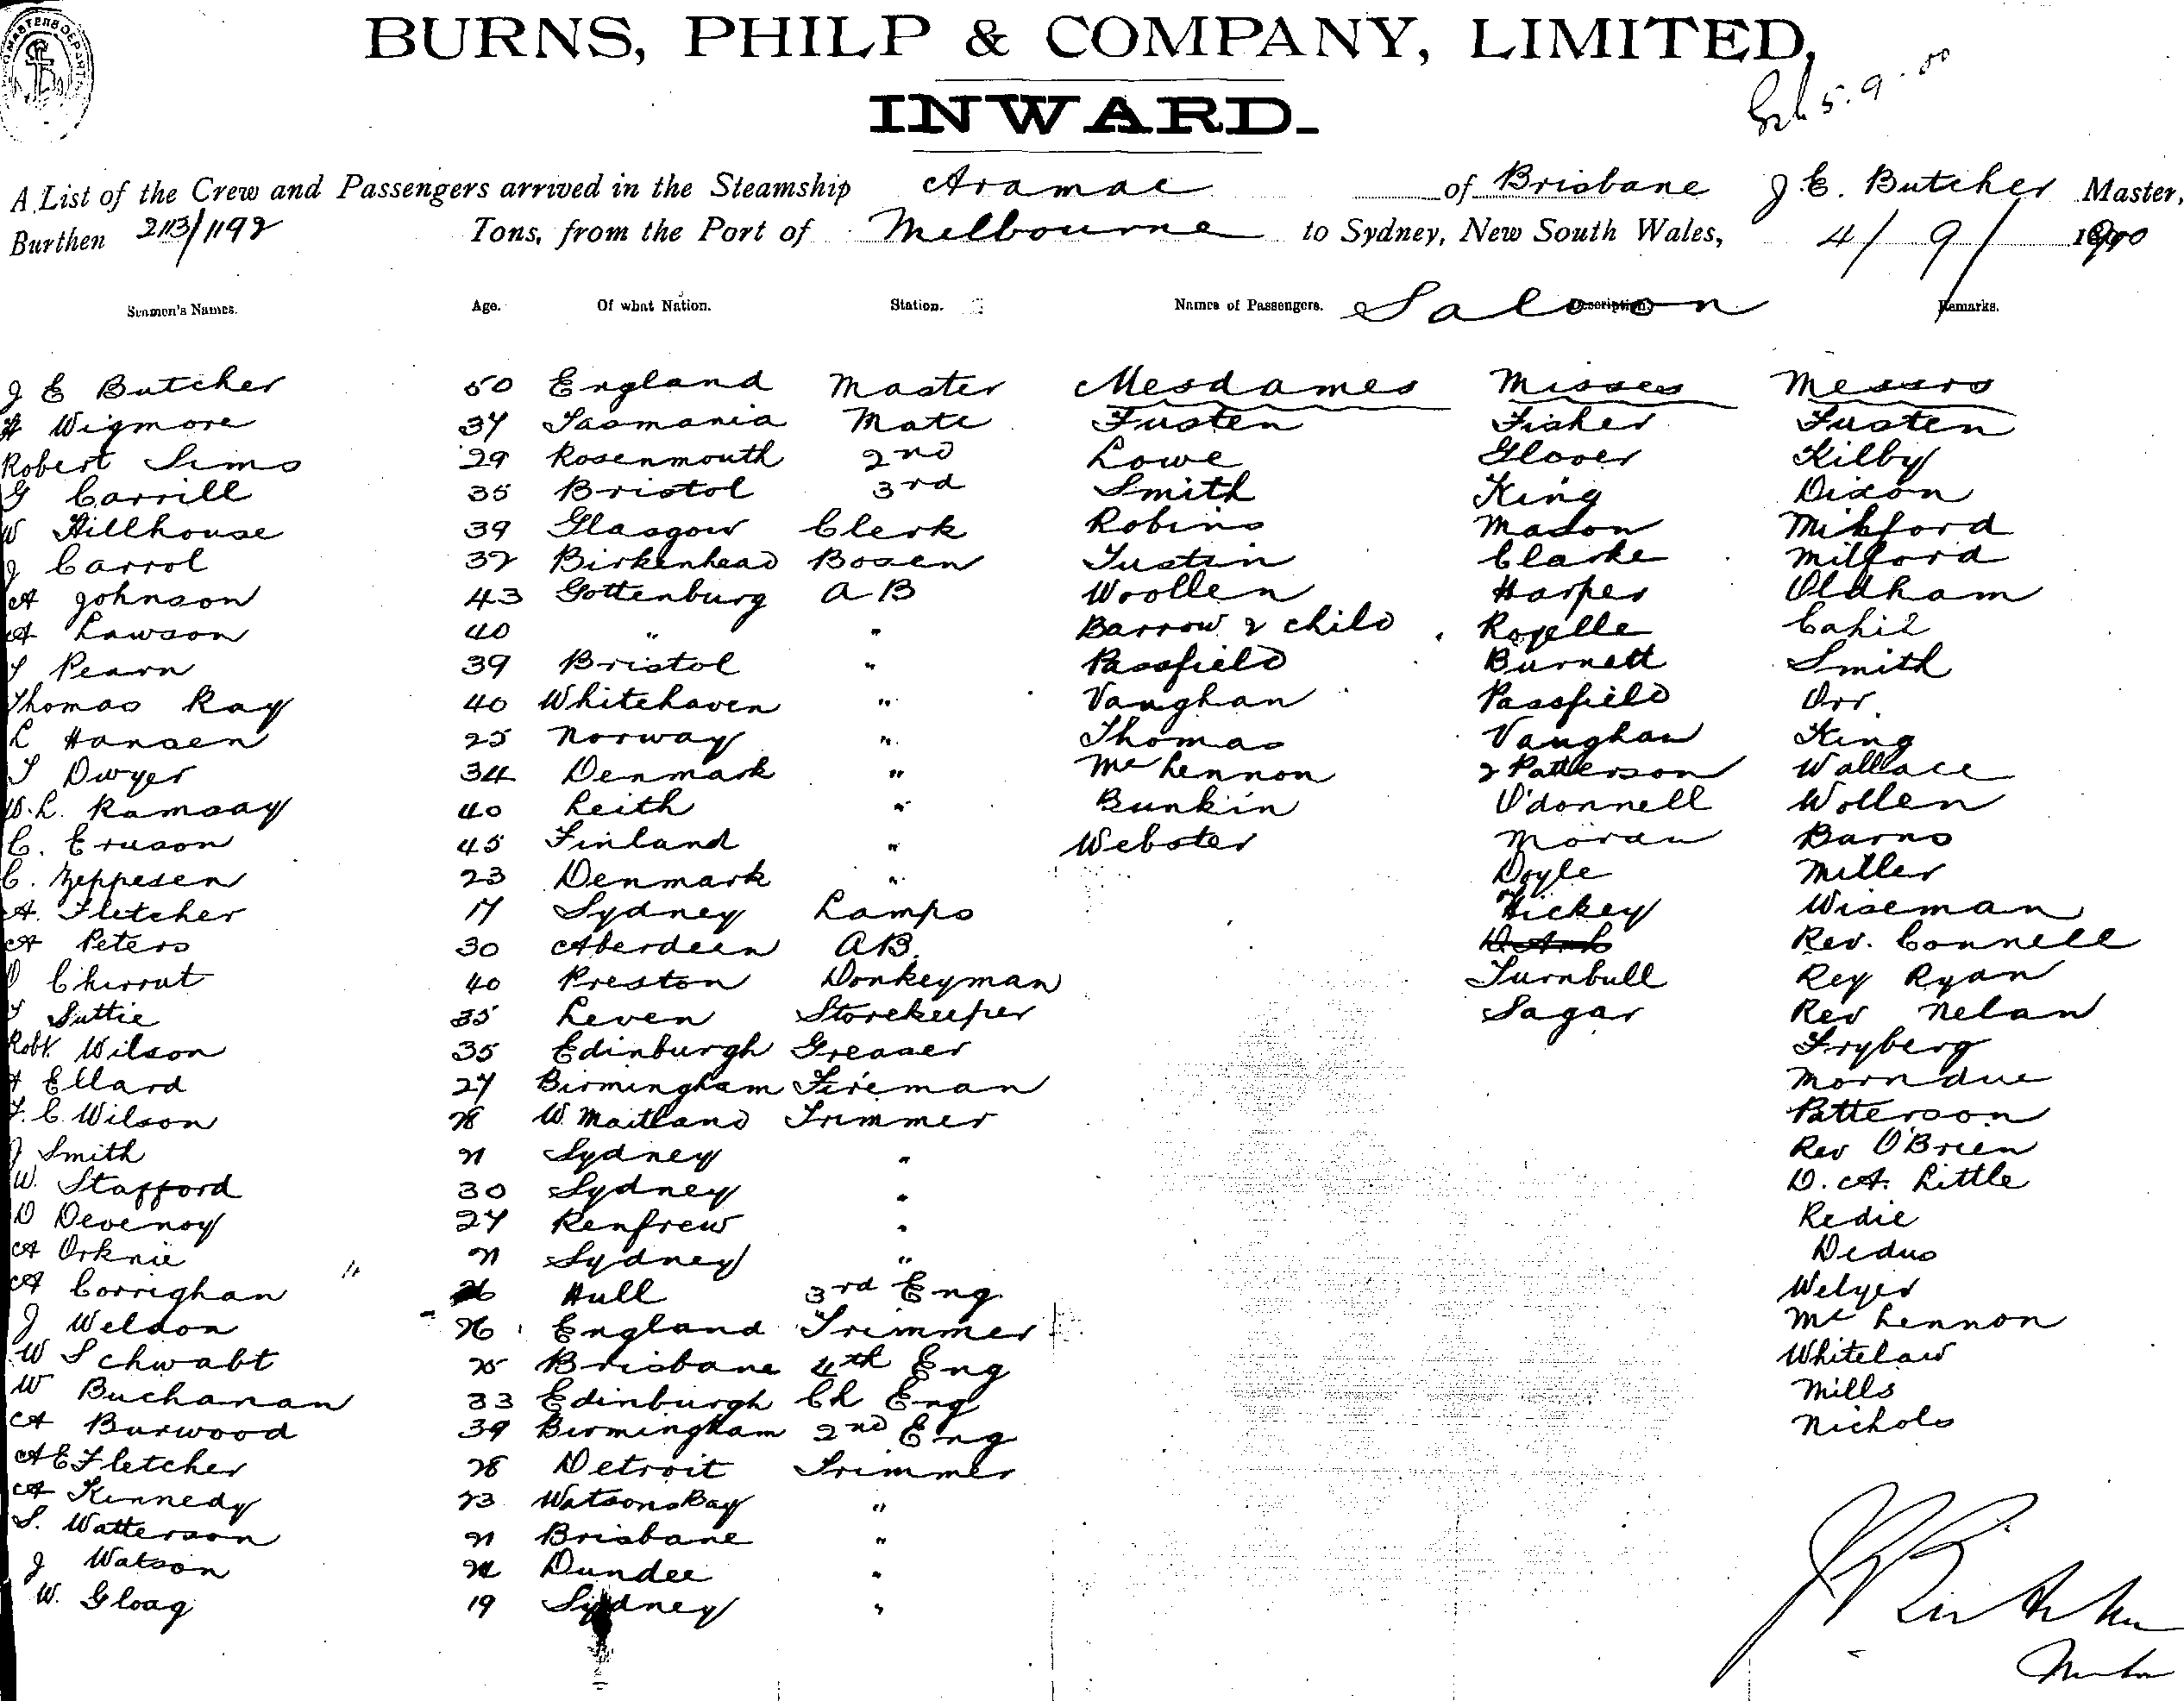 BURNS, PHILP & COMPANY, LIMITED,
INWARD.
5.9.00
A List of the Crew and Passengers arrived in the Steamship Aramac of Brisbane J. E. Butcher Master,
Burthen 2113/1192 Tons, from the Port of Melbourne to Sydney, New South Wales, 4/9/1900
Seamen's Names. Age. Of what Nation. Station. Names of Passengers. Saloon Description. Remarks.
J E Butcher 50 England Master Mesdames Misses Messrs
Wigmore 37 Tasmania Mate Fusten Fisher Fusten
Robert Sims 29 Rosenmouth 2nd Lowe Glover Kilby
G Carrill 35 Bristol 3rd Smith King Dixon
W Hillhouse 39 Glasgow Clerk Robins Mason Mitford
J Carrol 32 Birkenhead Bosen Tustin Clarke Milford
A Johnson 43 Gottenburg AB Woollen Harper Oldham
A Lawson 40 " " Barrow & child Rozelle Cahil
Pearn 39 Bristol " Passfield Burnett Smith
Thomas Ray 40 Whitehaven " Vaughan Passfield Orr
L Hansen 25 Norway " Thomas Vaughan King
T Dwyer 34 Denmark " McLennon 2 Patterson Wallace
W. L. Ramsay 40 Leith " Bunkin O'donnell Wollen
C. Eruson 45 Finland " Webster Moran Barns
C. Zeppesen 23 Denmark " Doyle Miller
A. Fletcher 17 Sydney Lamps Hickey Wiseman
A Peters 30 Aberdeen AB. Rev. Connell
Chirrut 40 Preston Donkeyman Turnbull Rev Ryan
Suttie 35 Leven Storekeeper Sagar Rev Nelan
Robt. Wilson 35 Edinburgh Greaser Fryberg
Ellard 27 Birmingham Fireman Morndue
F. C. Wilson 28 W. Maitland Trimmer Patterson
J Smith 21 Sydney " Rev O'Brien
W. Stafford 30 Sydney " D. A. Little
D Devenoy 27 Renfrew " Redie
A Orknie 21 Sydney " Dedus
A Corrighan 26 Hull 3rd Eng Welyer
J Weldon 26 England Trimmer McLennon
W Schwabt 25 Brisbane 4th Eng Whitelaw
W Buchanan 33 Edinburgh Ch Eng Mills
A Burwood 39 Birmingham 2nd Eng Nichols
A E Fletcher 28 Detroit Trimmer
A Kennedy 23 Watsons Bay "
S. Watterson 21 Brisbane "
J Watson Dundee "
W. Gloag 19 Sydney "
J Butcher
Master